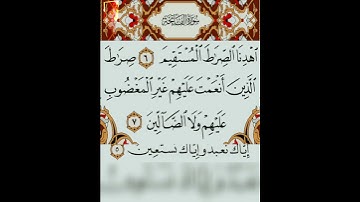 سورة الفاتحة
ٱهْدِنَا ٱلصِّرَٰطَ ٱلْمُسْتَقِيمَ ٦ صِرَٰطَ
ٱلَّذِينَ أَنْعَمْتَ عَلَيْهِمْ غَيْرِ ٱلْمَغْضُوبِ
عَلَيْهِمْ وَلَا ٱلضَّآلِّينَ ٧
إِيَّاكَ نَعْبُدُ وَإِيَّاكَ نَسْتَعِينُ ٥